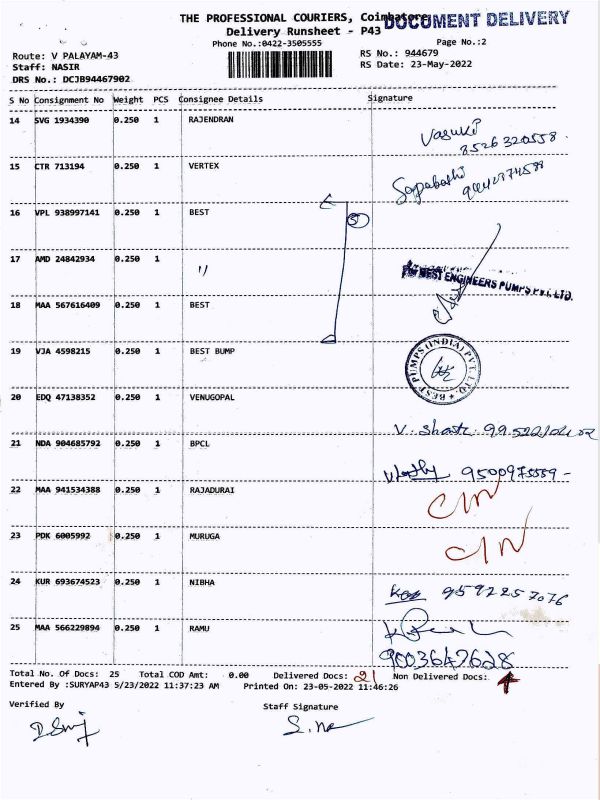 THE PROFESSIONAL COURIERS, Coimbatore
DOCUMENT DELIVERY
Delivery Runsheet - P43
Phone No.:0422-3505555
Page No.:2
Route: V PALAYAM-43
RS No.: 944679
Staff: NASIR
RS Date: 23-May-2022
DRS No.: DCJB94467902
S No Consignment No Weight PCS Consignee Details Signature
14 SVG 1934390 0.250 1 RAJENDRAN
Vasuki
8526320558
15 CTR 713194 0.250 1 VERTEX
16 VPL 938997141 0.250 1 BEST
5
17 AMD 24842934 0.250 1 "
For BEST ENGINEERS PUMPS PVT. LTD.
18 MAA 567616409 0.250 1 BEST
19 VJA 4598215 0.250 1 BEST BUMP
BEST PUMPS (INDIA) PVT. LTD.
20 EDQ 47138352 0.250 1 VENUGOPAL
21 NDA 904685792 0.250 1 BPCL
9500975559
22 MAA 941534388 0.250 1 RAJADURAI
23 PDK 6005992 0.250 1 MURUGA
24 KUR 693674523 0.250 1 NIBHA
9597257076
25 MAA 566229894 0.250 1 RAMU
9003647628
Total No. Of Docs: 25 Total COD Amt: 0.00 Delivered Docs: 21 Non Delivered Docs: 4
Entered By :SURYAP43 5/23/2022 11:37:23 AM Printed On: 23-05-2022 11:46:26
Verified By
Staff Signature